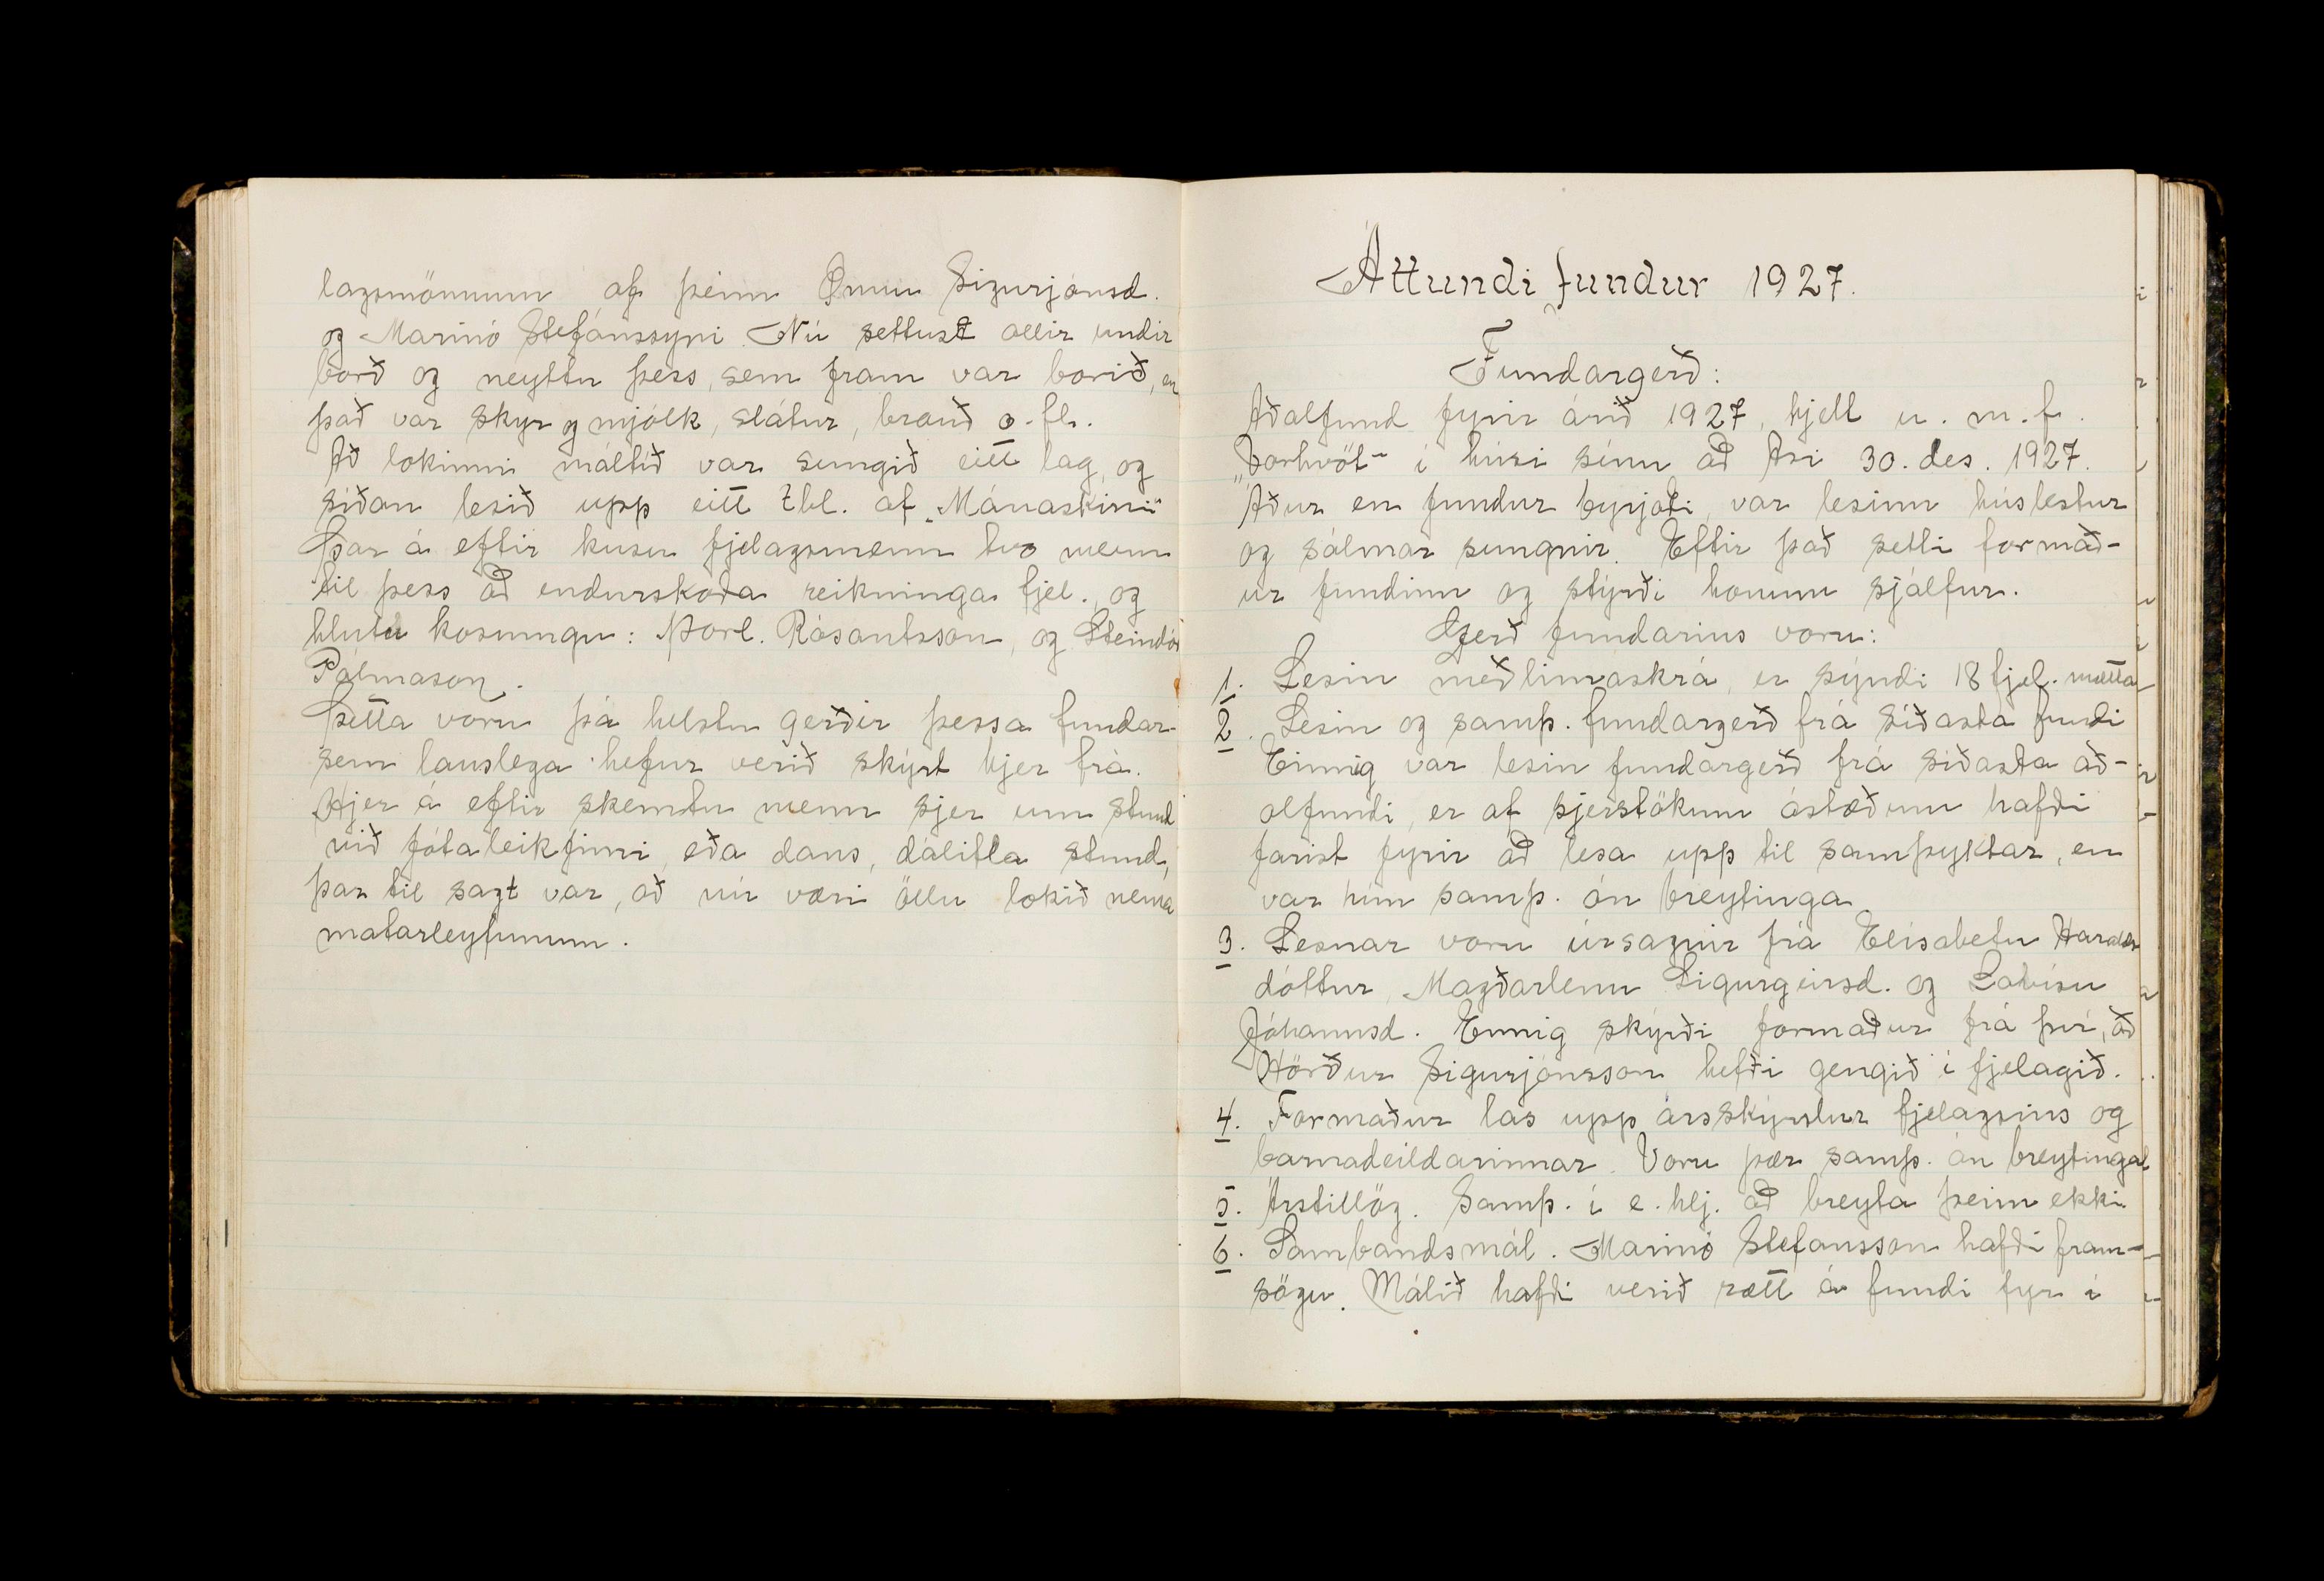 lagsmönnum af þeim Önnu Sigurjónsd.
og Marinó Stefánssyni. Nú settust allir undir
borð og neyttu þess, sem fram var borið, en
það var skyr og mjólk, slátur, brauð o. fl.
Að lokinni máltíð var sungið eitt lag, og
síðan lesið upp eitt tbl. af „Mánaskini“
Þar á eftir kusu fjelagsmenn tvo menn
til þess að endurskoða reikninga fjel., og
hlutu kosningu: Þorl. Rósantsson, og Steindór
Pálmason.
Þetta voru þá helstu gerðir þessa fundar
sem lauslega hefur verið skýrt hjer frá.
Hjer á eftir skemtu menn sjer um stund
við fótaleikfimi, eða dans, dálitla stund,
þar til sagt var, að nú væri öllu lokið nema
matarleyfunum.
Áttundi fundur 1927.
Fundargerð:
Aðalfund fyrir árið 1927, hjelt u. m. f.
„Þorhvöt“ í húsi sínu að Ási 30. des. 1927.
Áður en fundur byrjaði, var lesinn húslestur
og sálmar sungnir. Eftir það setti formað-
ur fundinn og stýrði honum sjálfur.
Gerð fundarins voru:
1. Lesin meðlimaskrá, er sýndi 18 fjel. mætta
2. Lesin og samþ. fundargerð frá síðasta fundi
Einnig var lesin fundargerð frá síðasta að-
alfundi, er af sjerstökum ástæðum hafði
farist fyrir að lesa upp til samþyktar, en
var hún samþ. án breytinga
3. Lesnar voru úrsagnir frá Elísabetu Haralds
dóttur, Magðarlenu Sigurgeirsd. og Lovísu
Jóhannsd. Ennig skýrði formaður frá því, að
Hörður Sigurjónsson hefði gengið í fjelagið.
4. Formaður las upp ársskýrslur fjelagsins og
barnadeildarinnar. Voru þær samþ. án breytinga
5. Árstillög. Samþ. í e. hlj. að breyta þeim ekki
6. Sambandsmál. Marinó Stefansson hafði fram-
sögu. Málið hafði verið rætt á fundi fyr í